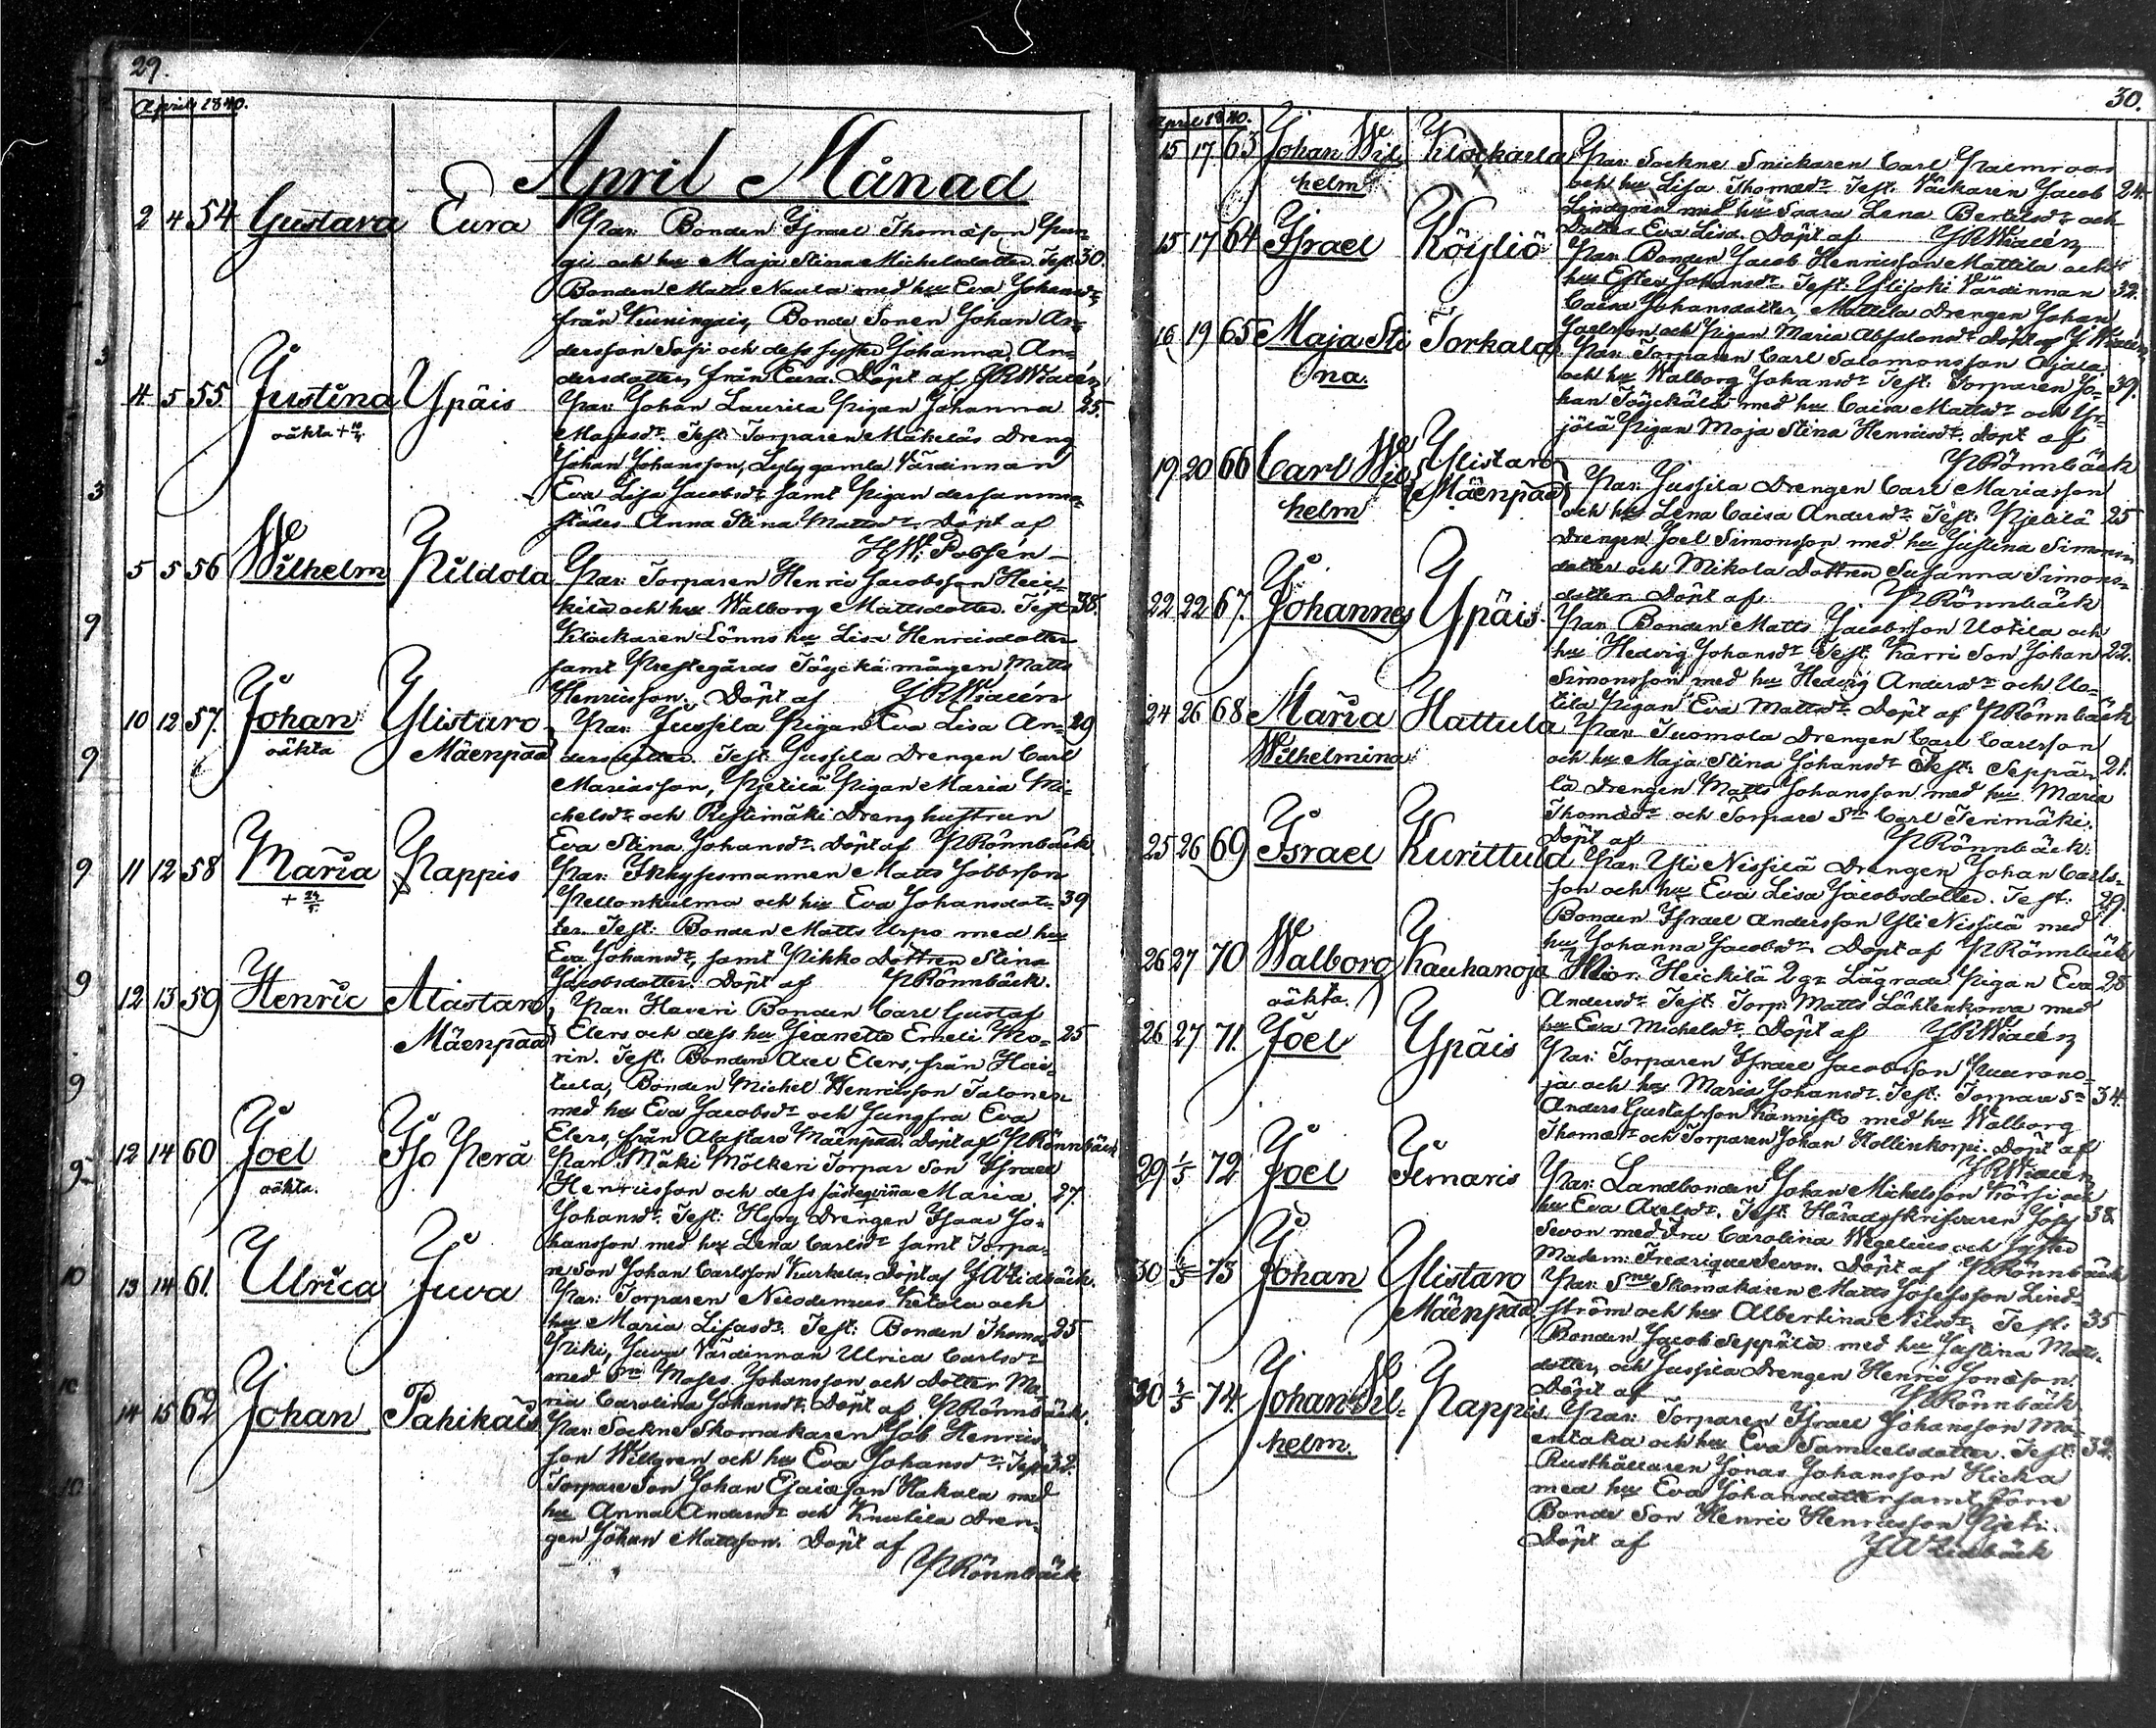 29.
April 1840.
April Månad
2 4 54 Gustava Eura Par: Bonden Israel Thomæson
och hu Maja Stina Michelsdotter. Test: 30.
Bonden Matts Naula med hu Eva Johansdr
från Bonde Sonen Johan An=
dersson och dess syster Johanna An=
dersdotter från Eura. Döpt af
4 5 55 Justina Ypäis Par: Johan Laurila Pigan Johanna 25.
oäkta
Test: Torparen Mäkeläs Dreng
Johan Johansson, gamla Värdinnan
Eva Lisa Jacobsdr samt Pigan dersamma=
städes Anna Stina Mattsdr. Döpt af
5 5 56 Wilhelm Par: Torparen Henric Jacobsson Hei=
kilä och hu Walborg Mattsdotter. Test: 38.
Klockaren Lönns hu Lisa Henricsdotter
samt Prestegårds mågen Matts
Henricsson. Döpt af
10 12 57. Johan Ylistaro Par: Jussila Pigan Eva Lisa An= 29
oäkta Mäenpää dersdotter. Test: Jussila Drengen Carl
Mariasson, Pietilä Pigan Maria Mi=
chelsdr och Ristimäki Dreng hustrun
Eva Stina Johansdr. Döpt af Rönnbäck
11 12 58 Maria Kappis Par: Inhysesmannen Matts
Pellonkulma och hu Eva Johansdot= 39
ter. Test: Bonden Matts Urpo med hu
Eva Johansdr, samt Pikko Dottren Stina
Jacobsdotter. Döpt af Rönnbäck.
12 13 59 Henric Alastaro Par: Haveri Bonden Carl Gustaf
Mäenpää Elers och dess hu Jeanette Emeli Mo= 25
rin. Test: Bonden Axel Elers, från
Bonden Michel Henricsson Talonen
med hu Eva Jacobsdr och Jungfru Eva
Elers, från Alastaro Mäenpää. Döpt af Rönnbäck
12 14 60 Joel Iso Perä Par: Mäki Mölkeri Torpar Son Israel
oäkta. Henricsson och dess fästeqvinna Maria 27.
Johansdr. Test: Drengen Isaac Jo=
hansson med hu Lena Carlsdr samt Torpa=
re Son Johan Carlsson Kurkela. Döpt af Lidbäck.
13 14 61. Ulrica Juva Par: Torparen Nicodemus Ketola och
hu Maria Lisasdr. Test: Bonden Thomas 25
Juva Värdinnan Ulrica Carlsdr
med Moses Johansson och Dotter Ma=
ria Carolina Johansdr. Döpt af Rönnbäck.
14 15 62 Johan Pahikais Par: Sockne Skomakaren Job Henrics=
son Willgren och hu Eva Johansdr. Test: 32.
Torpare Son Johan Esaiasson Hakala med
hu Anna Andersdr och Knutila Dren=
gen Johan Mattsson. Döpt af
Rönnbäck
30.
April 1840.
15 17 63 Johan Wil= Klockala Par: Sockne Snickaren Carl Palmroos
helm och hu Lisa Thomædr. Test: Jacob 24.
Lindgren med hu Saara Lena Bertilsdr och
Dotter Eva Lisa. Döpt af
15 17 64 Israel Köyliö Par: Bonden Jacob Henricsson Mattila och
hu Ester Johansdr. Test: Ylijoki Värdinnan 32.
Caisa Johansdotter, Mattila Drengen Johan
Joelsson och Pigan Maria Absalonsdr. Döpt af
16 19 65 Maja Sti Sorkala Par: Torparen Carl Salomonsson Ojala
na. och hu Walborg Johansdr. Test: Torparen Jo= 39.
han med hu Caisa Mattsdr och
Pigan Maja Stina Henricsdr. Döpt af
Rönnbäck
19 20 66 Carl Wil= Ylistaro
helm Mäenpää Par: Jussila Drengen Carl Mariasson
och hu Lena Caisa Andersdr. Test: Pietilä 25
Drengen Joel Simonsson med hu Justina Simons
dotter och Mikola Dottren Susanna Simons=
dotter. Döpt af Rönnbäck
22 22 67. Johannes Ypäis Par: Bonden Matts Jacobsson Uotila och
hu Hedvig Johansdr. Test: Karri Son Johan 22.
Simonsson med hu Hedvig Andersdr och Uo=
tila Pigan Eva Mattsdr. Döpt af Rönnbäck
24 26 68 Maria Hattula Par: Tuomola Drengen Carl Carlsson
Wilhelmina och hu Maja Stina Johansdr. Test: Seppä= 21.
lä Drengen Matts Johansson med hu Maria
Thomædr och Torpare Carl
Döpt af Rönnbäck.
25 26 69 Israel Kurittula Par: Yli Nissilä Drengen Johan Carls=
son och hu Eva Lisa Jacobsdotter. Test: 29.
Bonden Israel Andersson Yli Nissilä med
hu Johanna Jacobsdr. Döpt af Rönnbäck
26 27 70 Walborg Kauhanoja Heickilä 2 gr Lägrade Pigan Eva 28
oäkta. Andersdr. Test: Torp: Matts Lähtenkorva med
hu Eva Michelsdr. Döpt af
26 27 71. Joel Ypäis Par: Torparen Israel Jacobsson
ja och hu Maria Johansdr. Test: Torpare 34.
Anders Gustafsson Kannisto med hu Walborg
Thomædr och Torparen Johan Hollinkorpi. Döpt af
29 1/5 72 Joel Simaris Par: Landbonden Johan Michelsson och
hu Eva Axelsdr. Test: Häradsskrifvaren Josef 38.
Sevon med Fru Carolina Wegelius och syster
Madem: Fredrique Sevon. Döpt af Rönnbäck
30 73 Johan Ylistaro Par: Skomakaren Matts Josefsson Lind=
Mäenpää ström och hu Albertina Nilsdr. Test: 35
Bonden Jacob Seppälä med hu Justina Matts=
dotter, och Jussila Drengen Henric Jonæson.
Döpt af Rönnbäck
30 3/5 74. Johan Wil= Kappis Par: Torparen Israel Johansson Mä=
helm. entaka och hu Eva Samuelsdotter. Test: 32.
Rusthållaren Jonas Johansson
med hu Eva Johansdotter samt
Bonde Son Henric Henricsson
Döpt af Lidbäck